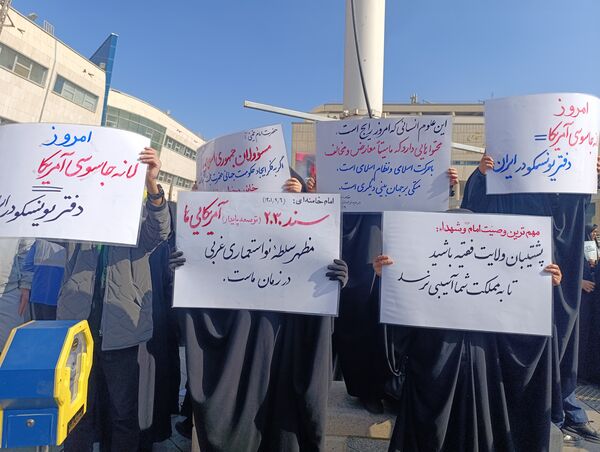 امروز
لانه جاسوسی آمریکا
=
دفتر یونسکو در ایران
حضرت امام خمینی:
مسؤولان جمهوری اسلامی
این علوم انسانی که امروز رایج است
محتواهایی دارد که ماهیتاً معارض و مخالف
با حرکت اسلامی و نظام اسلامی است،
متکی بر جهان بینی دیگری است.
امروز
لانه جاسوسی آمریکا
=
دفتر یونسکو در ایران
امام خامنه‌ای:
سند ۲۰۳۰ (توسعه پایدار) آمریکایی ها
مظهر سلطه نواستعماری غربی
در زمان ماست.
مهم ترین وصیت امام و شهدا:
پشتیبان ولایت فقیه باشید
تا به مملکت شما آسیبی نرسد